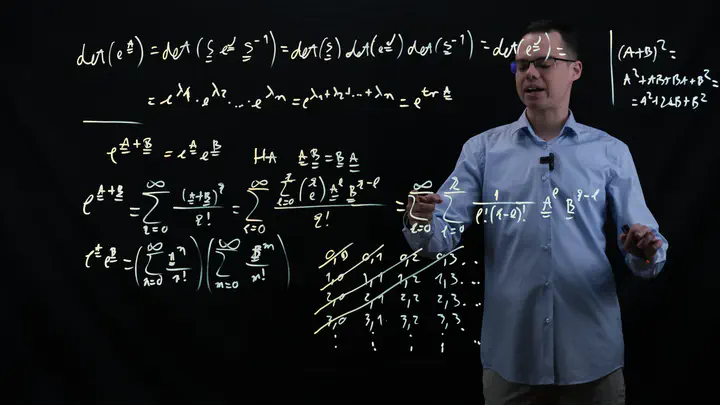 det(e^A) = det(S e^J S^-1) = det(S) det(e^J) det(S^-1) = det(e^J) =
= e^λ1 · e^λ2 · ... · e^λn = e^(λ1+λ2+...+λn) = e^(tr A)
(A+B)^2 =
A^2+AB+BA+B^2 =
= A^2+2AB+B^2
e^(A+B) = e^A e^B HA A B = B A
e^(A+B) = ∑_(q=0)^∞ (A+B)^q / q! = ∑_(q=0)^∞ ∑_(l=0)^q (q l) A^l B^(q-l) / q! = ∑_(q=0)^∞ ∑_(l=0)^q 1 / l!(q-l)! A^l B^(q-l)
e^A e^B = (∑_(n=0)^∞ A^n / n!) (∑_(m=0)^∞ B^m / m!)
0,0 0,1 0,2 0,3 ...
1,0 1,1 1,2 1,3 ...
2,0 2,1 2,2 2,3 ...
3,0 3,1 3,2 3,3 ...
⋮ ⋮ ⋮ ⋮